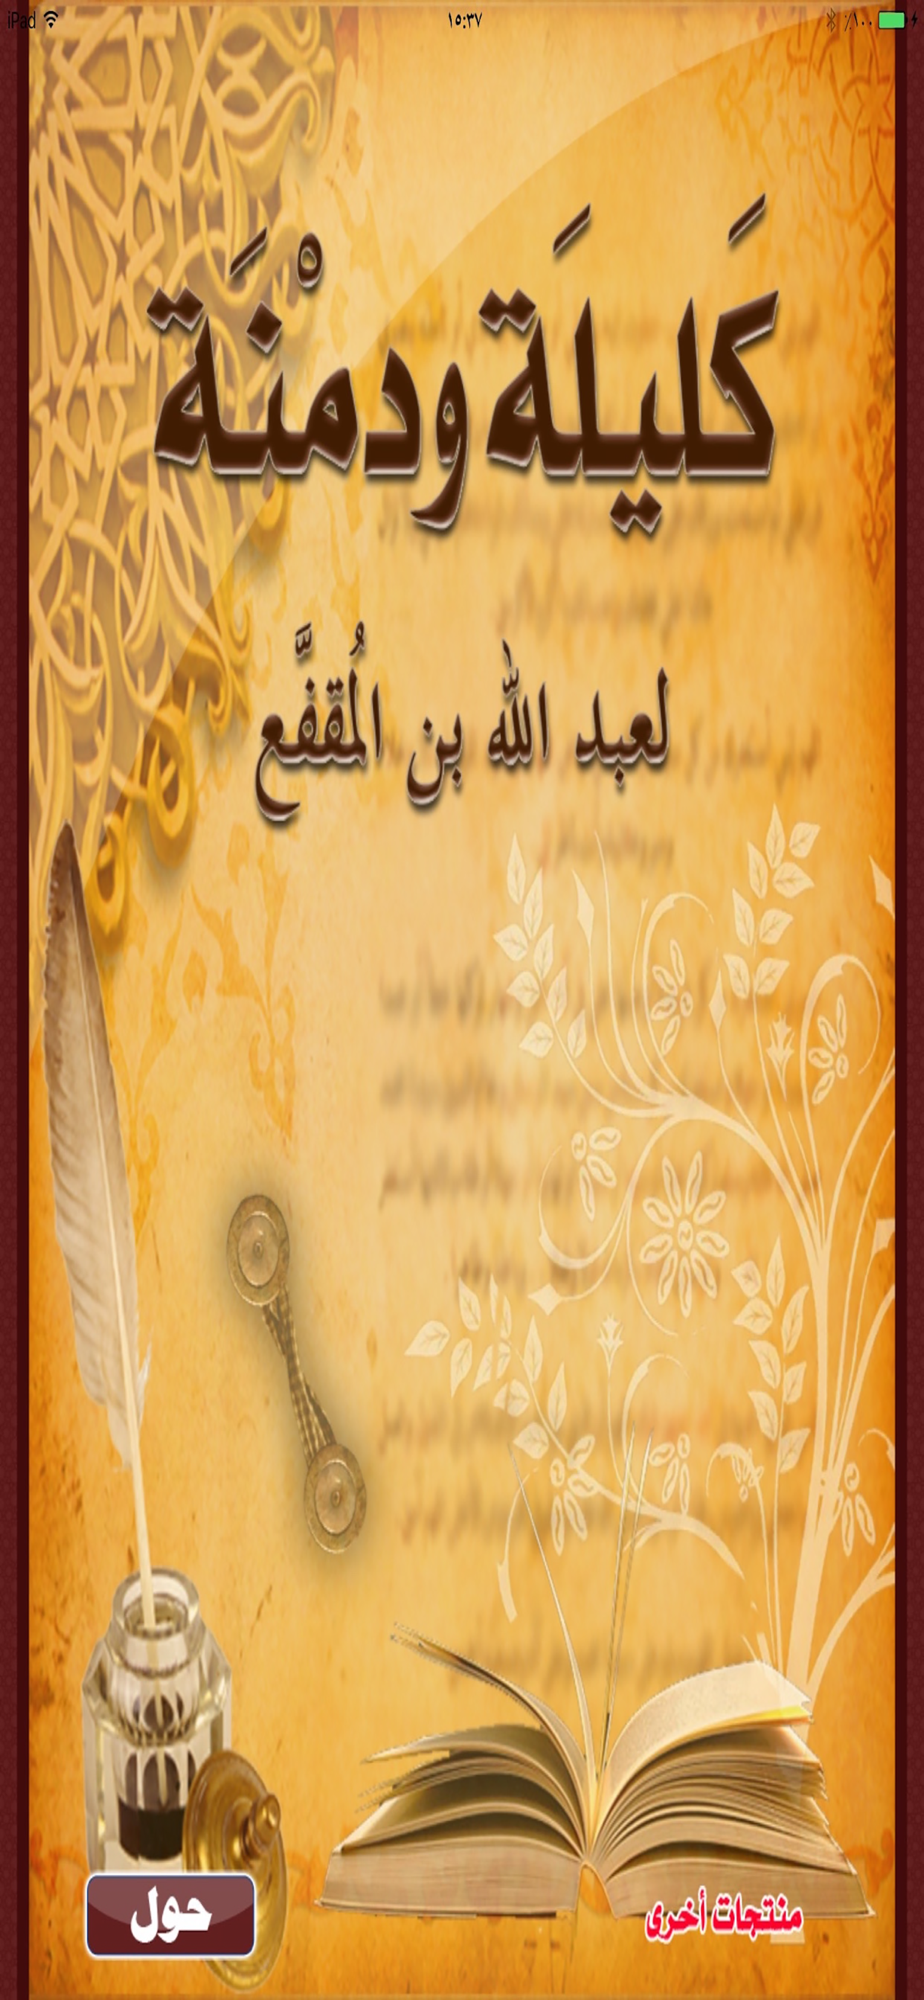 iPad ١٥:٣٧ ٪١٠٠
كَليلَة ودمْنَة
لعبد الله بن المُقفَّع
منتجات أخرى
حول